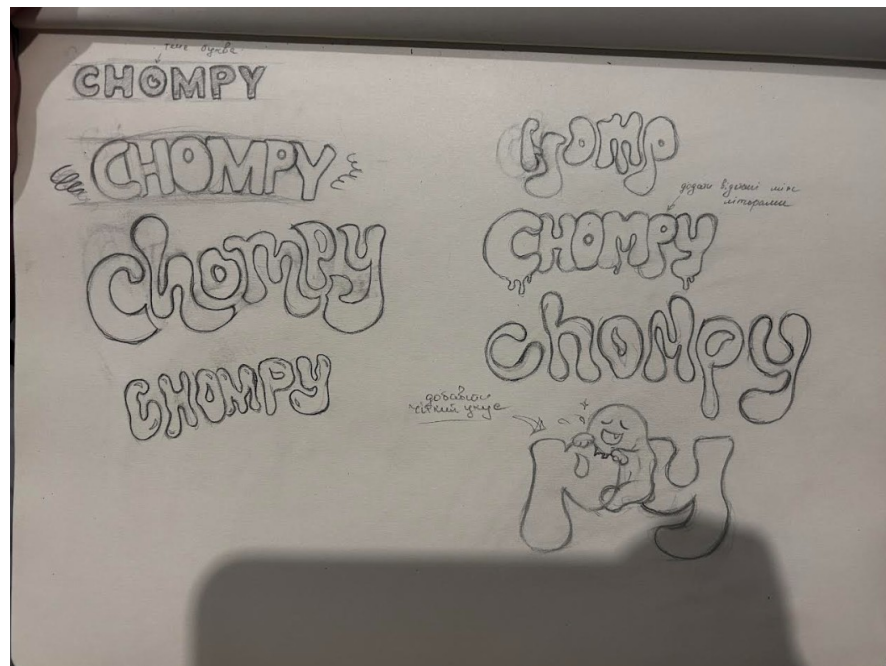 буква
CHOMPY
CHOMPY
chompy
CHOMPY
chomp
додати відстані між
літерами
CHOMPY
chompy
добавити
чіткий укус
py